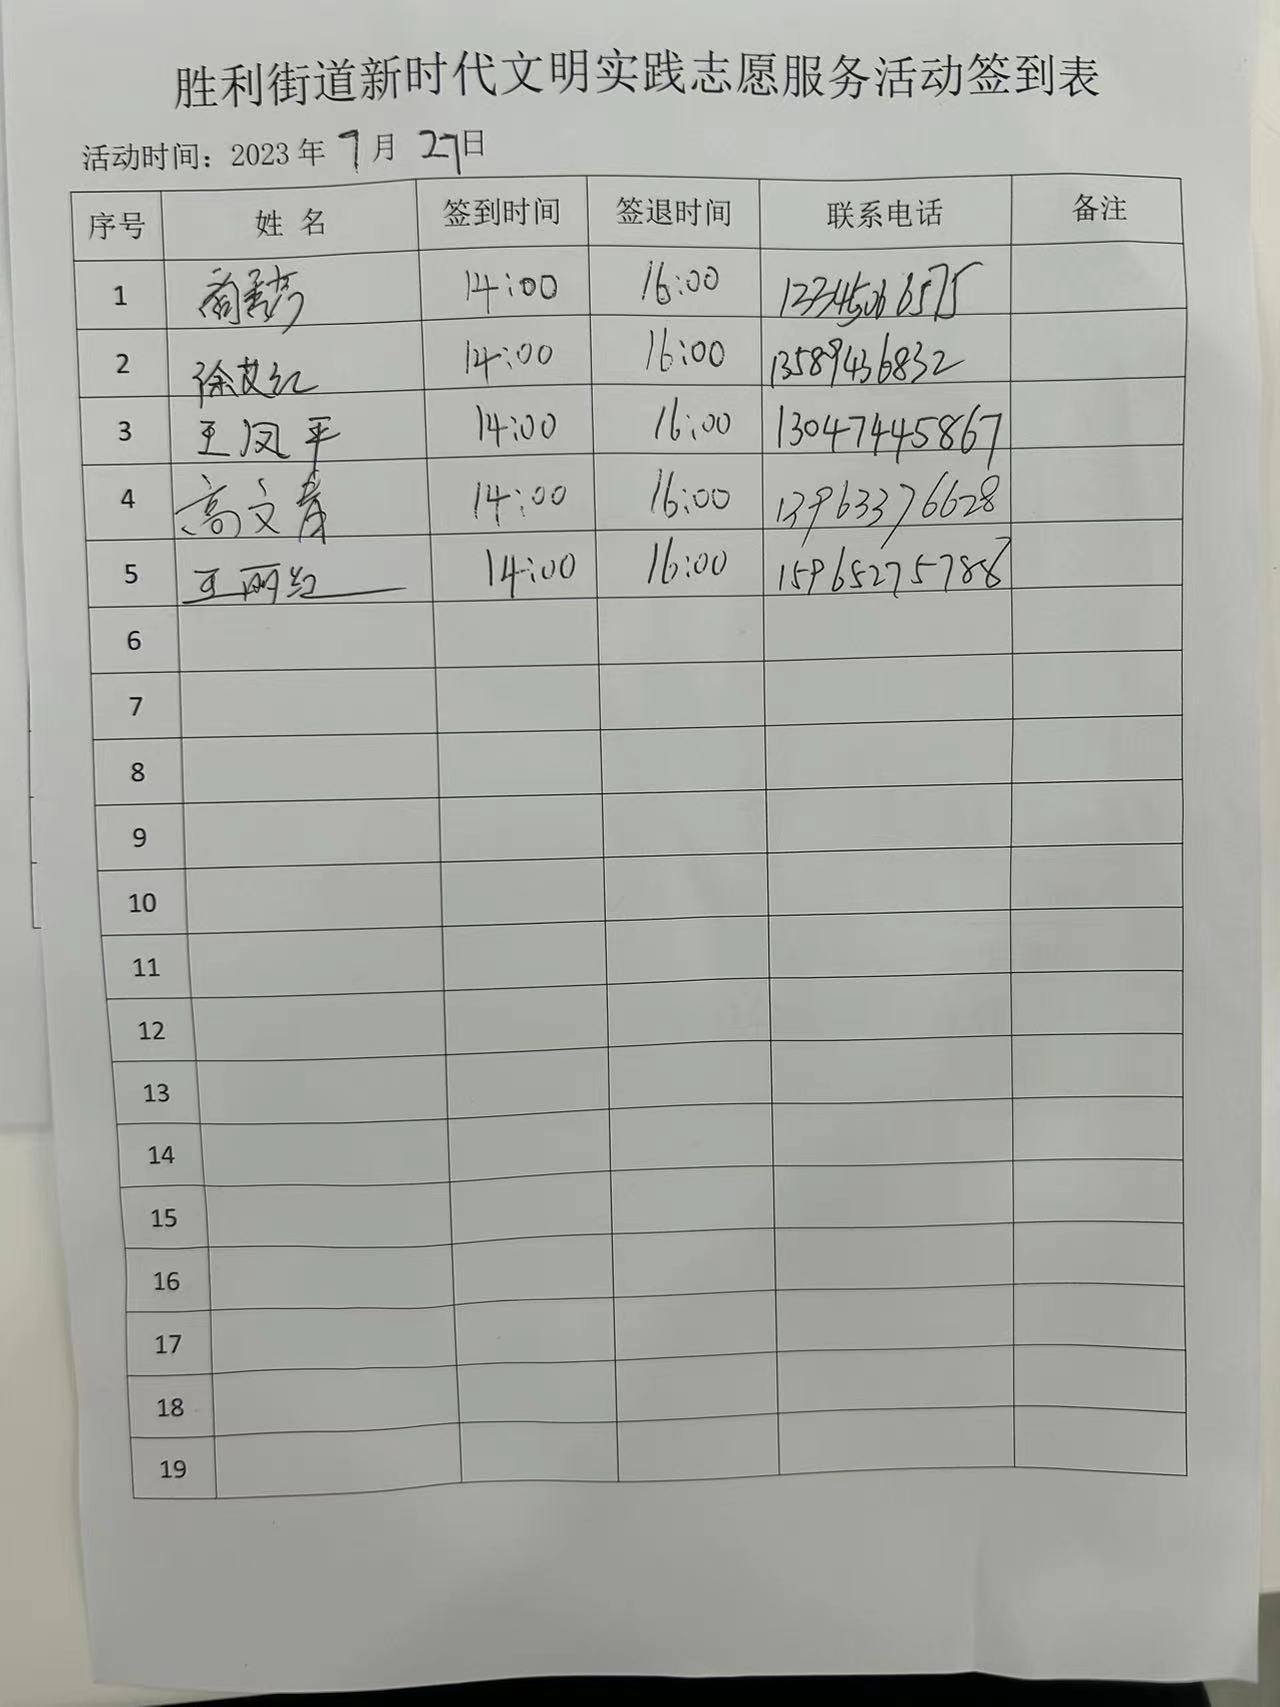 胜利街道新时代文明实践志愿服务活动签到表
活动时间：2023年 9月 27日
序号 姓 名 签到时间 签退时间 联系电话 备注
1 14:00 16:00
2 徐艾红 14:00 16:00 13589436832
3 王凤平 14:00 16:00 13047445867
4 高文青 14:00 16:00 13963376628
5 王丽红 14:00 16:00 15965275788
6
7
8
9
10
11
12
13
14
15
16
17
18
19